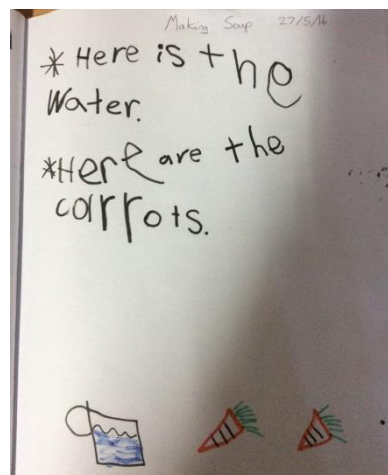 Making Soup 27/5/16
* Here is the
Water.
*Here are the
carrots.